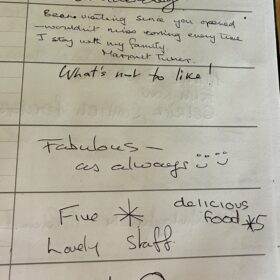 Been visiting since you opened
—wouldn't miss coming every time
I stay with my family
Margaret Turner.
What's not to like!
Fabulous —
as always
Five * delicious
food *5
Lovely Staff